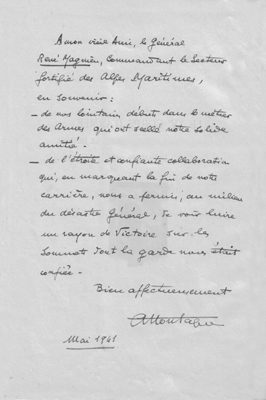 A mon vieil Ami, le Général
René Magnien, Commandant le Secteur
fortifié des Alpes Maritimes,
en souvenir :
– de nos lointains débuts dans le métier
des Armes qui ont scellé notre solide
amitié.
– de l'étroite et confiante collaboration
qui, en marquant la fin de notre
carrière, nous a permis, au milieu
du désastre Général, de voir luire
un rayon de Victoire sur les
Sommets dont la garde nous était
confiée.
Bien affectueusement
AMontagne
Mai 1941